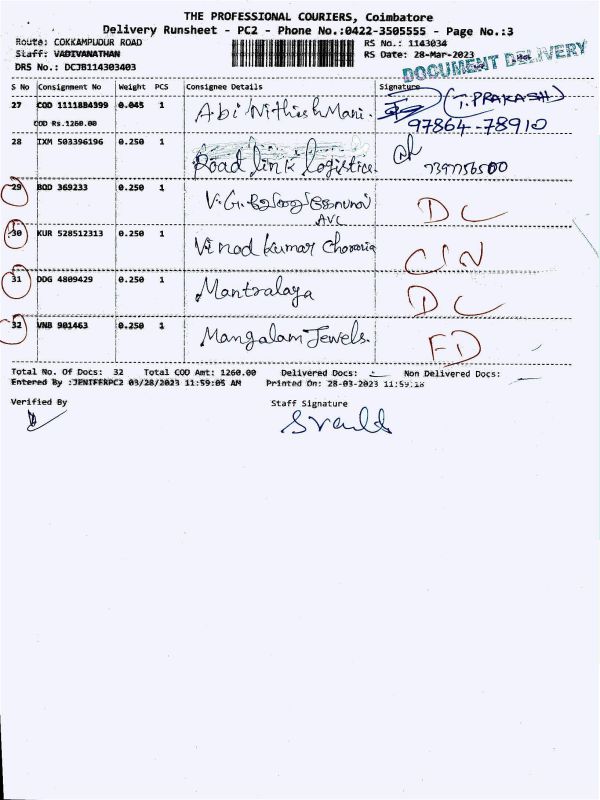 THE PROFESSIONAL COURIERS, Coimbatore
Delivery Runsheet - PC2 - Phone No.:0422-3505555 - Page No.:3
Route: COKKAMPUDUR ROAD RS No.: 1143034
Staff: VADIVANATHAN RS Date: 28-Mar-2023
DRS No.: DCJB114303403
DOCUMENT DELIVERY
S No Consignment No Weight PCS Consignee Details Signature
27 COD 1111884399 0.045 1 Abi Nithish Mani. (T. PRAKASH)
COD Rs.1260.00 97864-78910
28 IXM 503396196 0.250 1 Road link logistics. 7397756500
29 BOD 369233 0.250 1 V.G. DC
AVC
30 KUR 528512313 0.250 1 Vinod kumar CIN
31 DDG 4809429 0.250 1 Mantralaya DC
32 VNB 901463 0.250 1 Mangalam Jewels. FD
Total No. Of Docs: 32 Total COD Amt: 1260.00 Delivered Docs: Non Delivered Docs:
Entered By :JENIFERPC2 03/28/2023 11:59:05 AM Printed On: 28-03-2023 11:59:18
Verified By Staff Signature